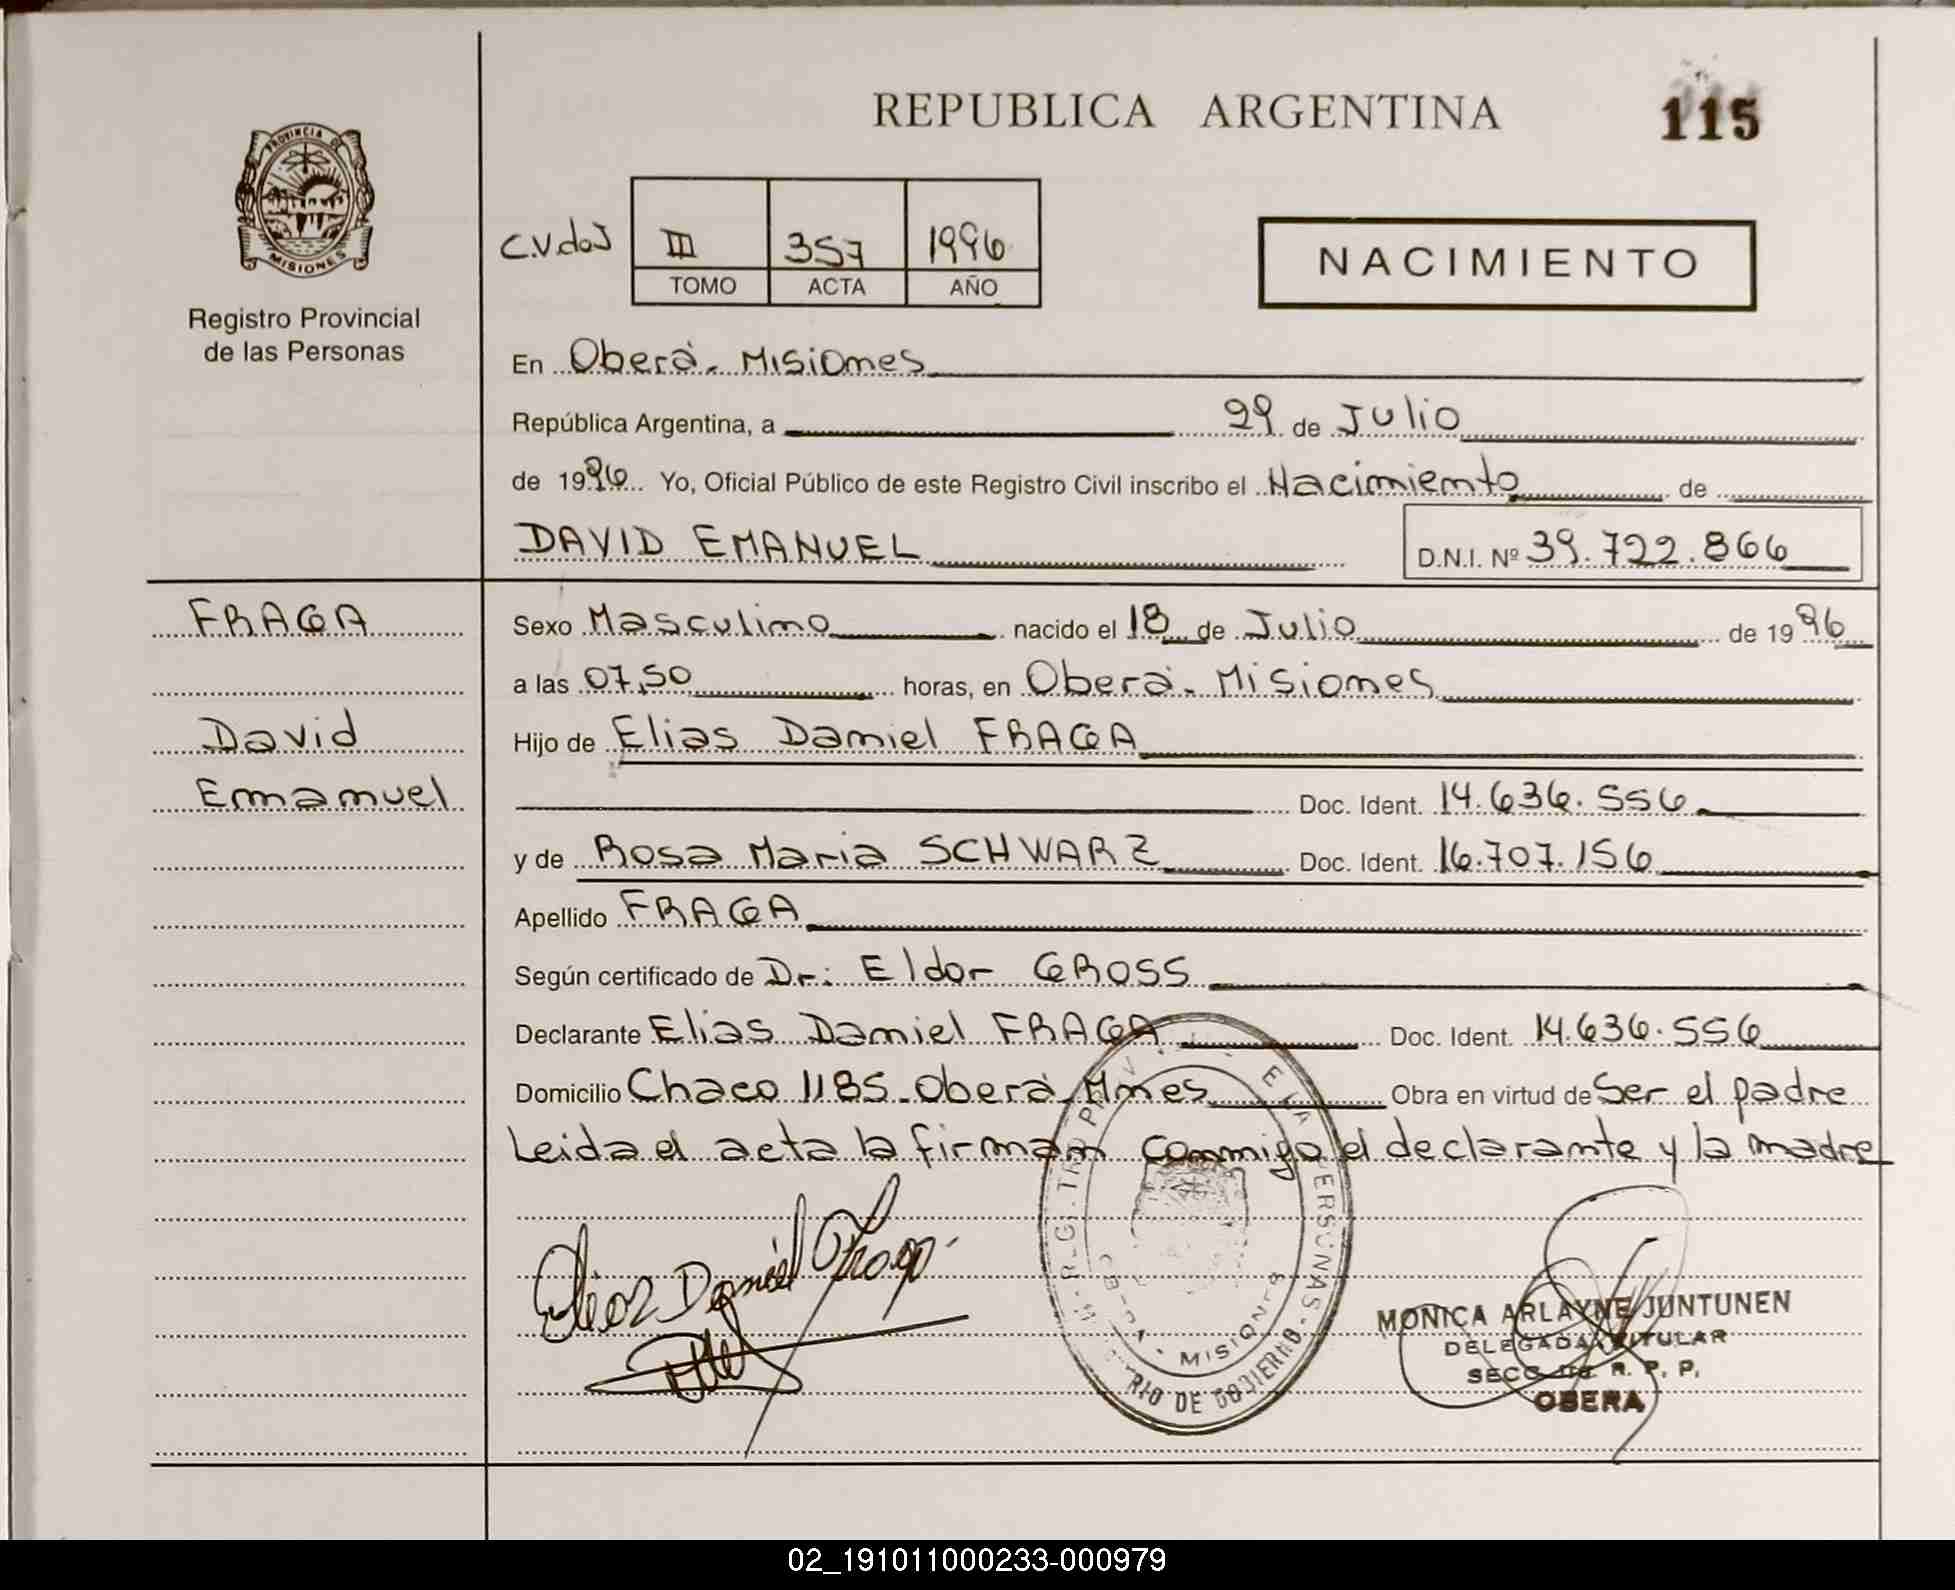 REPUBLICA ARGENTINA
115
PROVINCIA DE
MISIONES
Registro Provincial
de las Personas
C.V.dos
III 357 1996
TOMO ACTA AÑO
NACIMIENTO
En Oberá. Misiones
República Argentina, a 29 de Julio
de 1996 Yo, Oficial Público de este Registro Civil inscribo el Nacimiento de
DAVID EMANUEL D.N.I. Nº 39.722.866
FRAGA
David
Emanuel
Sexo Masculino nacido el 18 de Julio de 1996
a las 07,50 horas, en Oberá. Misiones
Hijo de Elias Daniel FRAGA
Doc. Ident. 14.636.556
y de Rosa Maria SCHWARZ Doc. Ident. 16.707.156
Apellido FRAGA
Según certificado de Dr: Eldor GROSS
Declarante Elias Daniel FRAGA Doc. Ident. 14.636.556
Domicilio Chaco 1185. Oberá, Mnes Obra en virtud de Ser el padre
Leida el acta la firman conmigo el declarante y la madre
Elias Daniel Fraga
MISIONES
RIO DE GOBIERNO
MONICA ARLAYNE JUNTUNEN
DELEGADA TITULAR
SECC. DE R. P. P.
OBERA
02_191011000233-000979